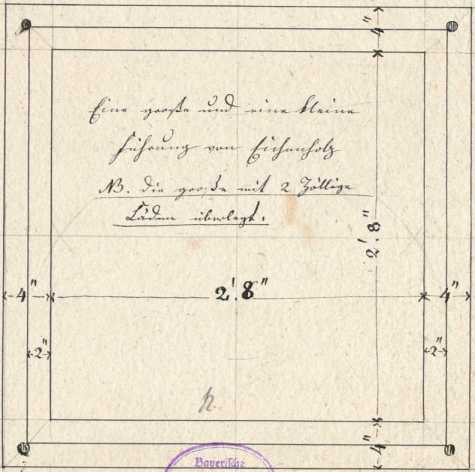 4"
Eine große und eine kleine
Führung von Eichenholz
NB. die große mit 2 Zöllige
Läden überlegt.
2'. 8"
4"
2'. 8"
4"
2"
2"
4"
Bayerische